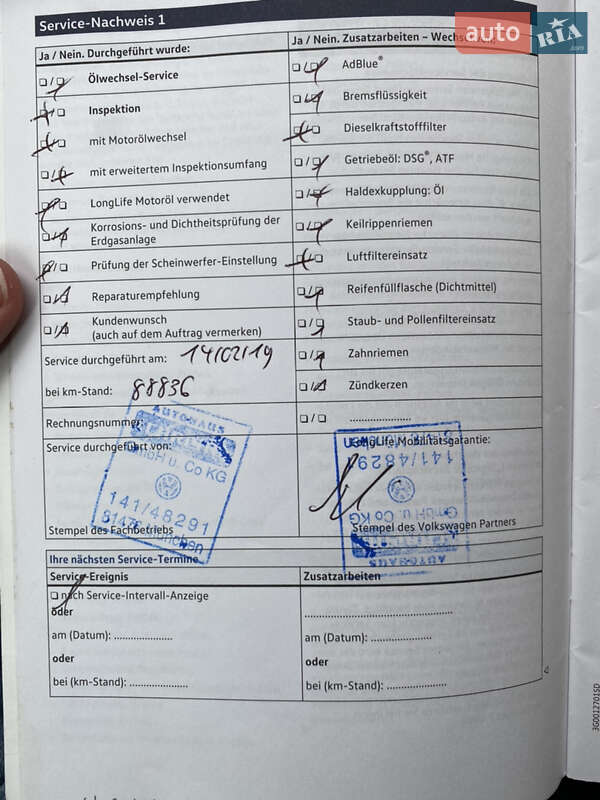 Service-Nachweis 1
auto RIA .com
Ja / Nein. Durchgeführt wurde:
Ölwechsel-Service
Inspektion
mit Motorölwechsel
mit erweitertem Inspektionsumfang
LongLife Motoröl verwendet
Korrosions- und Dichtheitsprüfung der
Erdgasanlage
Prüfung der Scheinwerfer-Einstellung
Reparaturempfehlung
Kundenwunsch
(auch auf dem Auftrag vermerken)
Service durchgeführt am: 14/02/19
bei km-Stand: 88836
Rechnungsnummer:
Service durchgeführt von:
AUTOHAUS
GmbH u. Co KG
141/48291
81475 München
Stempel des Fachbetriebs
Ja / Nein. Zusatzarbeiten –
AdBlue®
Bremsflüssigkeit
Dieselkraftstofffilter
Getriebeöl: DSG®, ATF
Haldexkupplung: Öl
Keilrippenriemen
Luftfiltereinsatz
Reifenfüllflasche (Dichtmittel)
Staub- und Pollenfiltereinsatz
Zahnriemen
Zündkerzen
....................
LongLife Mobilitätsgarantie:
141/48291
GmbH u. Co KG
AUTOHAUS
Stempel des Volkswagen Partners
Ihre nächsten Service-Termine
Service-Ereignis
nach Service-Intervall-Anzeige
oder
am (Datum): ...................
oder
bei (km-Stand): ...................
Zusatzarbeiten
am (Datum): ...................
oder
bei (km-Stand): ...................
3G0012701SD